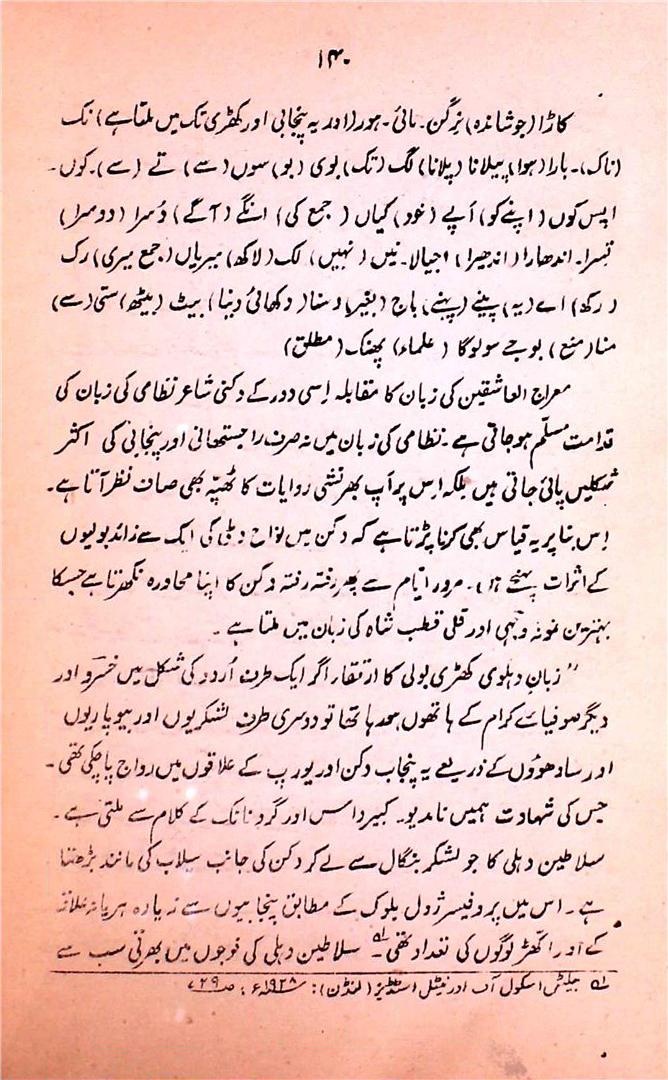 ۱۴۰
کاڑا (جوشاندہ) نِرگُن۔ مائی۔ ہور (اور یہ پنجابی اور کھڑی تک میں ملتا ہے) نک
(ناک)۔ بارا (ہوا) پیلانا (پلانا) لگ (تک) بوی (بو) سوں (سے) تے (سے)۔ کوں۔
اپس کوں (اپنے کو) اَپے (خود) کیاں (جمع کی) انگے (آگے) دُسرا (دوسرا)
تِسرا۔ اندھارا (اندھیرا) اجیالا۔ نیں (نہیں) لک (لاکھ) میریاں (جمع میری) رک
(رکھ) اے (یہ) پینے (پہنے) باج (بغیر) دِسنا (دکھائی دینا) بیٹ (بیٹھ) ستی (سے)
منا (منع) بوجے سولوگا (علماء) پھنک (مطلق)
معراج العاشقین کی زبان کا مقابلہ اِسی دور کے دکنی شاعر نظامی کی زبان کی
قدامت مسلّم ہو جاتی ہے۔ نظامی کی زبان میں نہ صرف راجستھانی اور پنجابی کی اکثر
شکلیں پائی جاتی ہیں بلکہ اِس پر اَپ بھرنشی روایات کا ٹھپّہ بھی صاف نظر آتا ہے۔
اِس بنا پر یہ قیاس بھی کرنا پڑتا ہے کہ دکن میں نواح دہلی کی ایک سے زائد بولیوں
کے اثرات پہنچے ہیں۔ مرور ایّام سے رفتہ رفتہ دکن کا اپنا محاورہ نکھرتا ہے جس کا
بہترین نمونہ وجہی اور قلی قطب شاہ کی زبان میں ملتا ہے۔
"زبانِ دہلوی کھڑی بولی کا ارتقار اگر ایک طرف اُردو کی شکل میں خسرو اور
دیگر صوفیائے کرام کے ہاتھوں ہو رہا تھا تو دوسری طرف لشکریوں اور بیوپاریوں
اور سادھوؤں کے ذریعے یہ پنجاب دکن اور پورب کے علاقوں میں رواج پا چکی تھی۔
جس کی شہادت ہمیں نامدیو۔ کبیر داس اور گرو نانک کے کلام سے ملتی ہے۔
سلاطین دہلی کا جو لشکر بنگال سے لے کر دکن کی جانب سیلاب کی مانند بڑھتا
ہے۔ اس میں پروفیسر ژول بلوک کے مطابق پنجابیوں سے زیادہ ہریانہ علاقہ
کے اور اکھڑ لوگوں کی تعداد تھی۔ ؎۱ سلاطین دہلی کی فوجوں میں بھرتی سب سے
؎۱ بلیٹن اسکول آف اورنیٹل اسٹڈیز (لنڈن): ۱۹۲۸ء، ص ۷۲۹